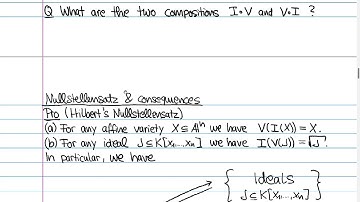 Q What are the two compositions I∘V and V∘I ?
Nullstellensatz & consequences
Pto (Hilbert's Nullstellensatz)
(a) For any affine variety X ⊆ Aⁿ we have V(I(X)) = X.
(b) For any ideal J ⊆ K[x₁,...,xₙ] we have I(V(J)) = √J.
In particular, we have
{ Ideals
J ⊆ K[x₁,...,xₙ] }